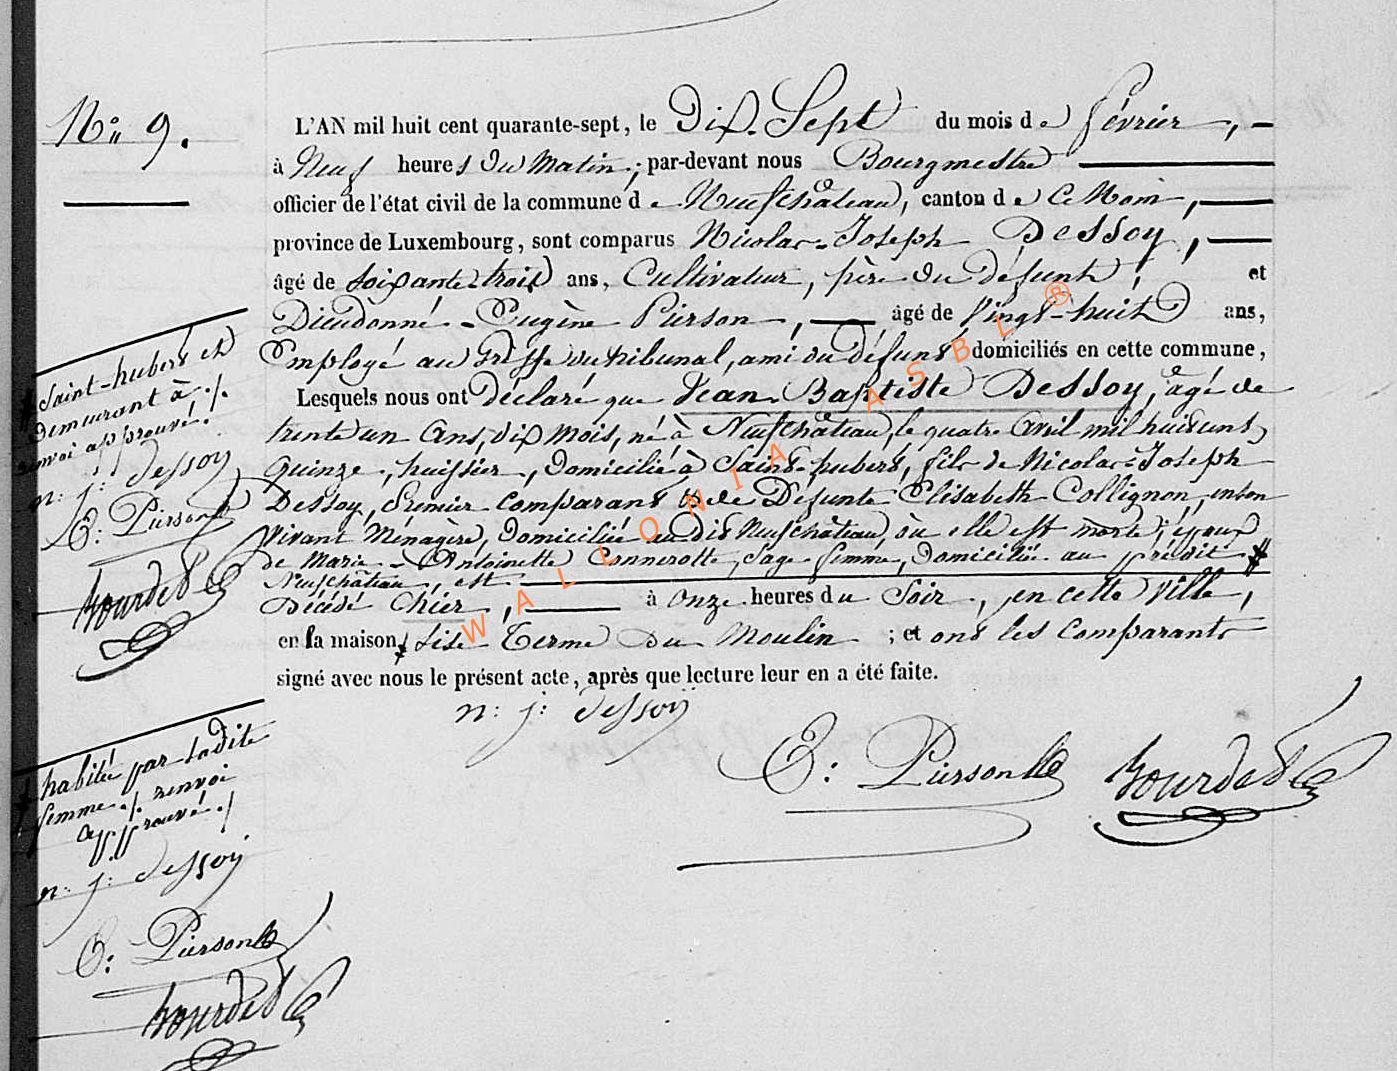 N° 9.
L'AN mil huit cent quarante-sept, le Dix-Sept du mois de février,
à Neuf heures du matin; par-devant nous Bourgmestre
officier de l'état civil de la commune de Neufchâteau, canton de Ce Nom,
province de Luxembourg, sont comparus Nicolas-Joseph Dessoy,
âgé de soixante trois ans, Cultivateur, père du défunt, et
Dieudonné-Eugène Pierson, âgé de vingt-huit ans,
Employé au Greffe du tribunal, ami du défunt domiciliés en cette commune,
Lesquels nous ont déclaré que Jean-Baptiste Dessoy, âgé de
trente un ans, dix mois, né à Neufchâteau, le quatre avril mil huit cent
quinze, huissier, domicilié à Saint-hubert, fils de Nicolas-Joseph
Dessoy, premier comparant & de Défunte Elisabeth Collignon, en son
vivant Ménagère, domiciliée audit Neufchâteau, où elle est morte; époux
de Marie-Antoinette Connerotte, Sage femme, domiciliée au prédit
Neufchâteau, est
Décédé hier, à onze heures du Soir, en cette Ville,
en la maison sise Terme du Moulin ; et ont les comparants
signé avec nous le présent acte, après que lecture leur en a été faite.
n: j: dessoy
E: Pierson Bourdet
Saint-hubert et
demeurant à ./.
renvoi approuvé ./.
n: j: dessoy
E: Pierson
Bourdet
habitée par ladite
femme ./. renvoi
approuvé ./
n: j: dessoy
E: Pierson
Bourdet
WALLONIA ASBL ®